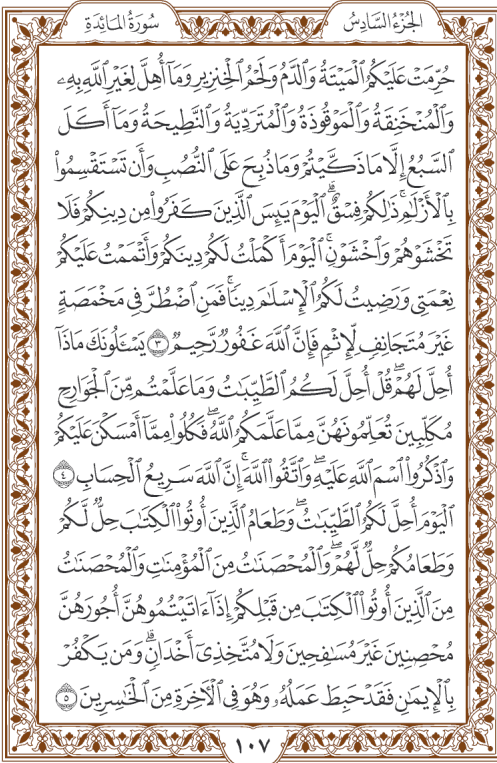 الجُزْءُ السَّادِسُ
سُورَةُ المَائِدَةِ
حُرِّمَتْ عَلَيْكُمُ ٱلْمَيْتَةُ وَٱلدَّمُ وَلَحْمُ ٱلْخِنزِيرِ وَمَآ أُهِلَّ لِغَيْرِ ٱللَّهِ بِهِۦ
وَٱلْمُنْخَنِقَةُ وَٱلْمَوْقُوذَةُ وَٱلْمُتَرَدِّيَةُ وَٱلنَّطِيحَةُ وَمَآ أَكَلَ
ٱلسَّبُعُ إِلَّا مَا ذَكَّيْتُمْ وَمَا ذُبِحَ عَلَى ٱلنُّصُبِ وَأَن تَسْتَقْسِمُوا۟
بِٱلْأَزْلَٰمِ ۚ ذَٰلِكُمْ فِسْقٌ ۗ ٱلْيَوْمَ يَئِسَ ٱلَّذِينَ كَفَرُوا۟ مِن دِينِكُمْ فَلَا
تَخْشَوْهُمْ وَٱخْشَوْنِ ۚ ٱلْيَوْمَ أَكْمَلْتُ لَكُمْ دِينَكُمْ وَأَتْمَمْتُ عَلَيْكُمْ
نِعْمَتِى وَرَضِيتُ لَكُمُ ٱلْإِسْلَٰمَ دِينًا ۚ فَمَنِ ٱضْطُرَّ فِى مَخْمَصَةٍ
غَيْرَ مُتَجَانِفٍ لِّإِثْمٍ ۙ فَإِنَّ ٱللَّهَ غَفُورٌ رَّحِيمٌ ٣ يَسْـَٔلُونَكَ مَاذَآ
أُحِلَّ لَهُمْ ۖ قُلْ أُحِلَّ لَكُمُ ٱلطَّيِّبَٰتُ ۙ وَمَا عَلَّمْتُم مِّنَ ٱلْجَوَارِحِ
مُكَلِّبِينَ تُعَلِّمُونَهُنَّ مِمَّا عَلَّمَكُمُ ٱللَّهُ ۖ فَكُلُوا۟ مِمَّآ أَمْسَكْنَ عَلَيْكُمْ
وَٱذْكُرُوا۟ ٱسْمَ ٱللَّهِ عَلَيْهِ ۖ وَٱتَّقُوا۟ ٱللَّهَ ۚ إِنَّ ٱللَّهَ سَرِيعُ ٱلْحِسَابِ ٤
ٱلْيَوْمَ أُحِلَّ لَكُمُ ٱلطَّيِّبَٰتُ ۖ وَطَعَامُ ٱلَّذِينَ أُوتُوا۟ ٱلْكِتَٰبَ حِلٌّ لَّكُمْ
وَطَعَامُكُمْ حِلٌّ لَّهُمْ ۖ وَٱلْمُحْصَنَٰتُ مِنَ ٱلْمُؤْمِنَٰتِ وَٱلْمُحْصَنَٰتُ
مِنَ ٱلَّذِينَ أُوتُوا۟ ٱلْكِتَٰبَ مِن قَبْلِكُمْ إِذَآ ءَاتَيْتُمُوهُنَّ أُجُورَهُنَّ
مُحْصِنِينَ غَيْرَ مُسَٰفِحِينَ وَلَا مُتَّخِذِىٓ أَخْدَانٍ ۗ وَمَن يَكْفُرْ
بِٱلْإِيمَٰنِ فَقَدْ حَبِطَ عَمَلُهُۥ وَهُوَ فِى ٱلْأَخِرَةِ مِنَ ٱلْخَٰسِرِينَ ٥
١٠٧